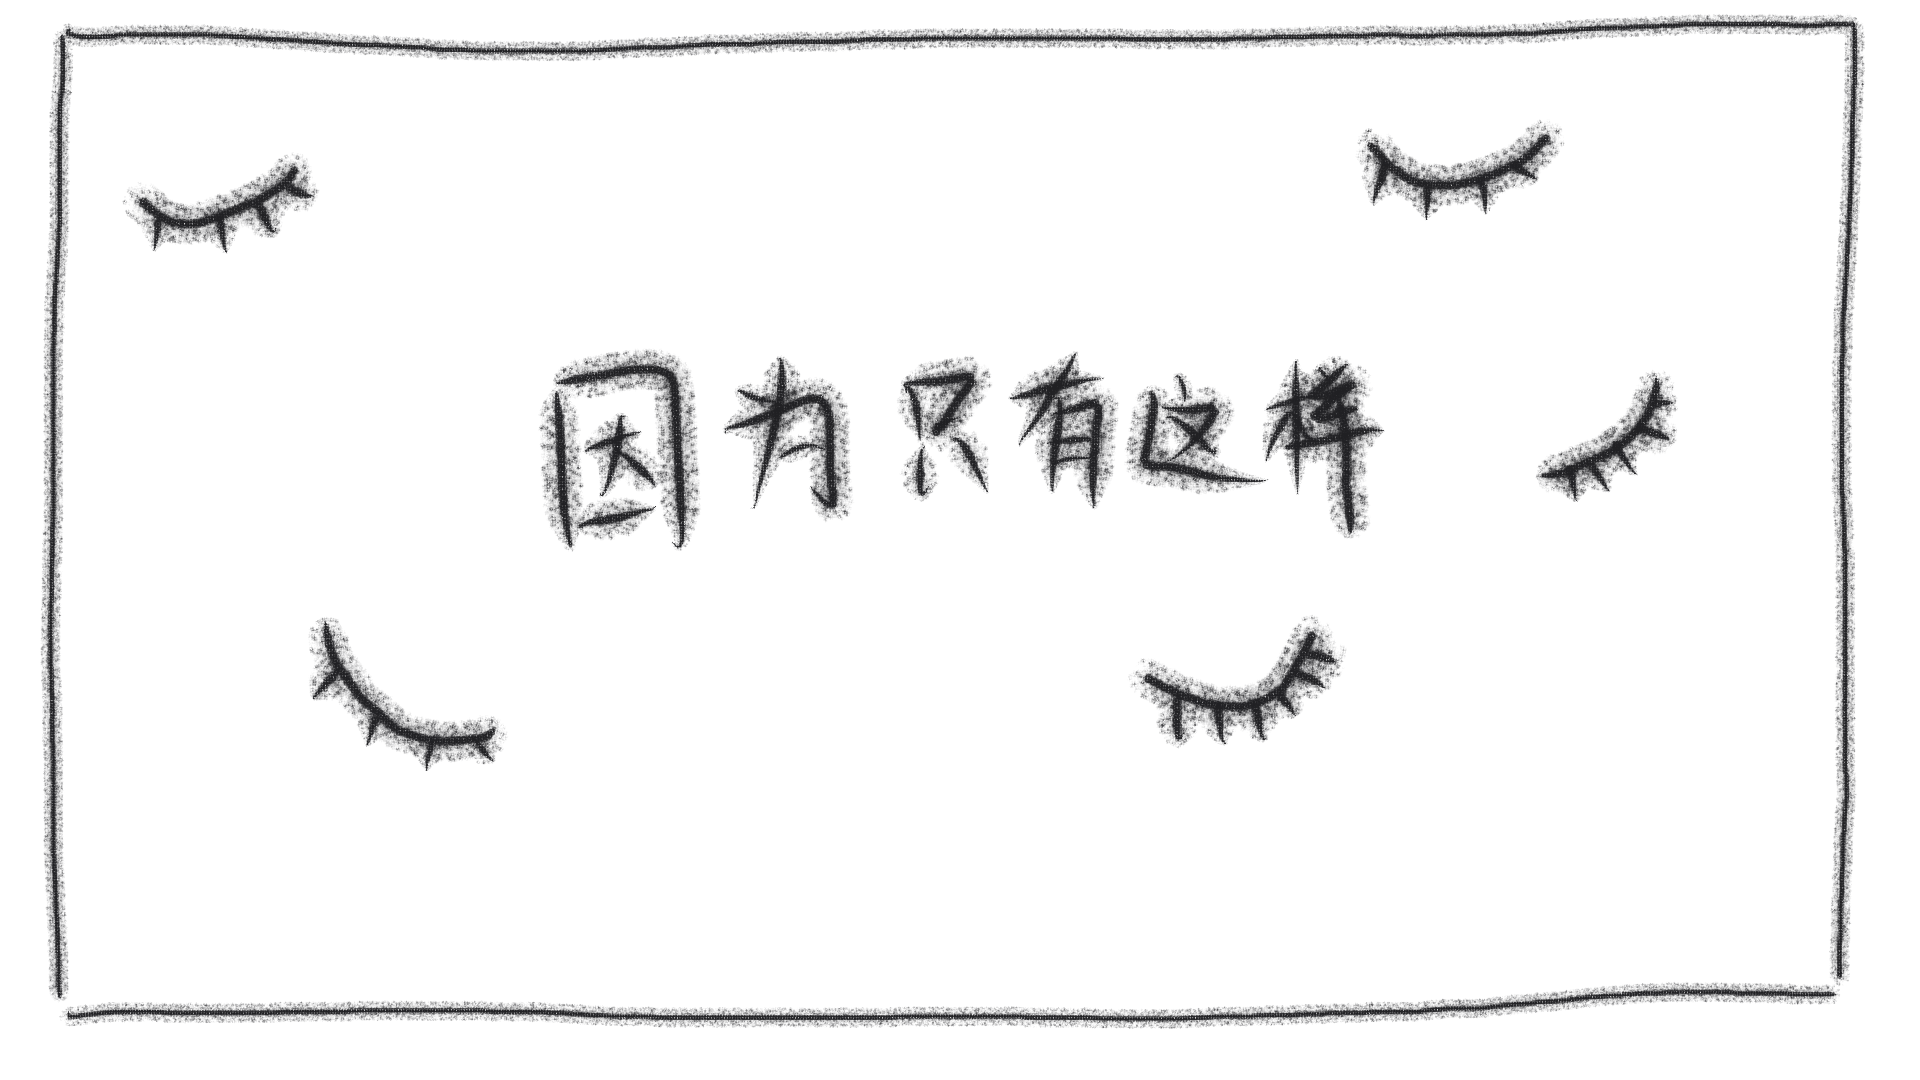 因为只有这样